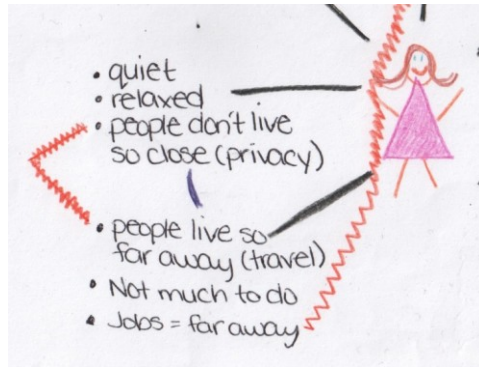 • quiet
• relaxed
• people don't live
so close (privacy)
• people live so
far away (travel)
• Not much to do
• Jobs = far away